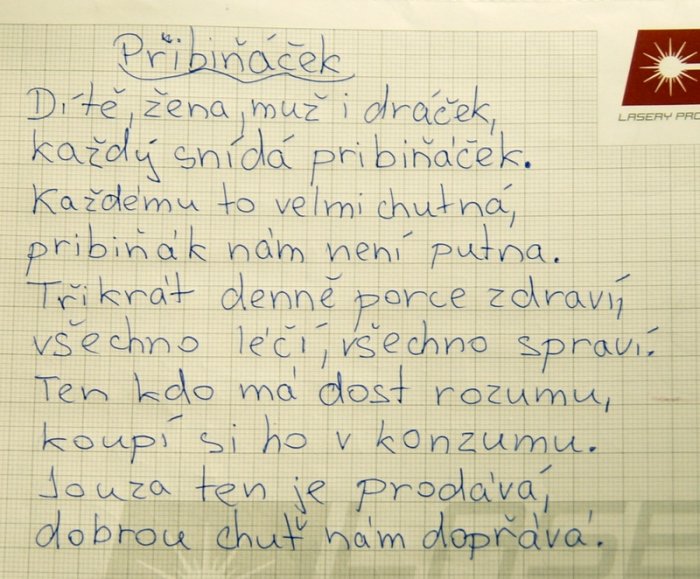 Přibiňáček
LASERY PRO
Dítě, žena, muž i dráček,
každý snídá pribiňáček.
Každému to velmi chutná,
pribiňák nám není putna.
Třikrát denně porce zdraví,
všechno léčí, všechno spraví.
Ten kdo má dost rozumu,
koupí si ho v konzumu.
Jouza ten je prodává,
dobrou chuť nám dopřává.